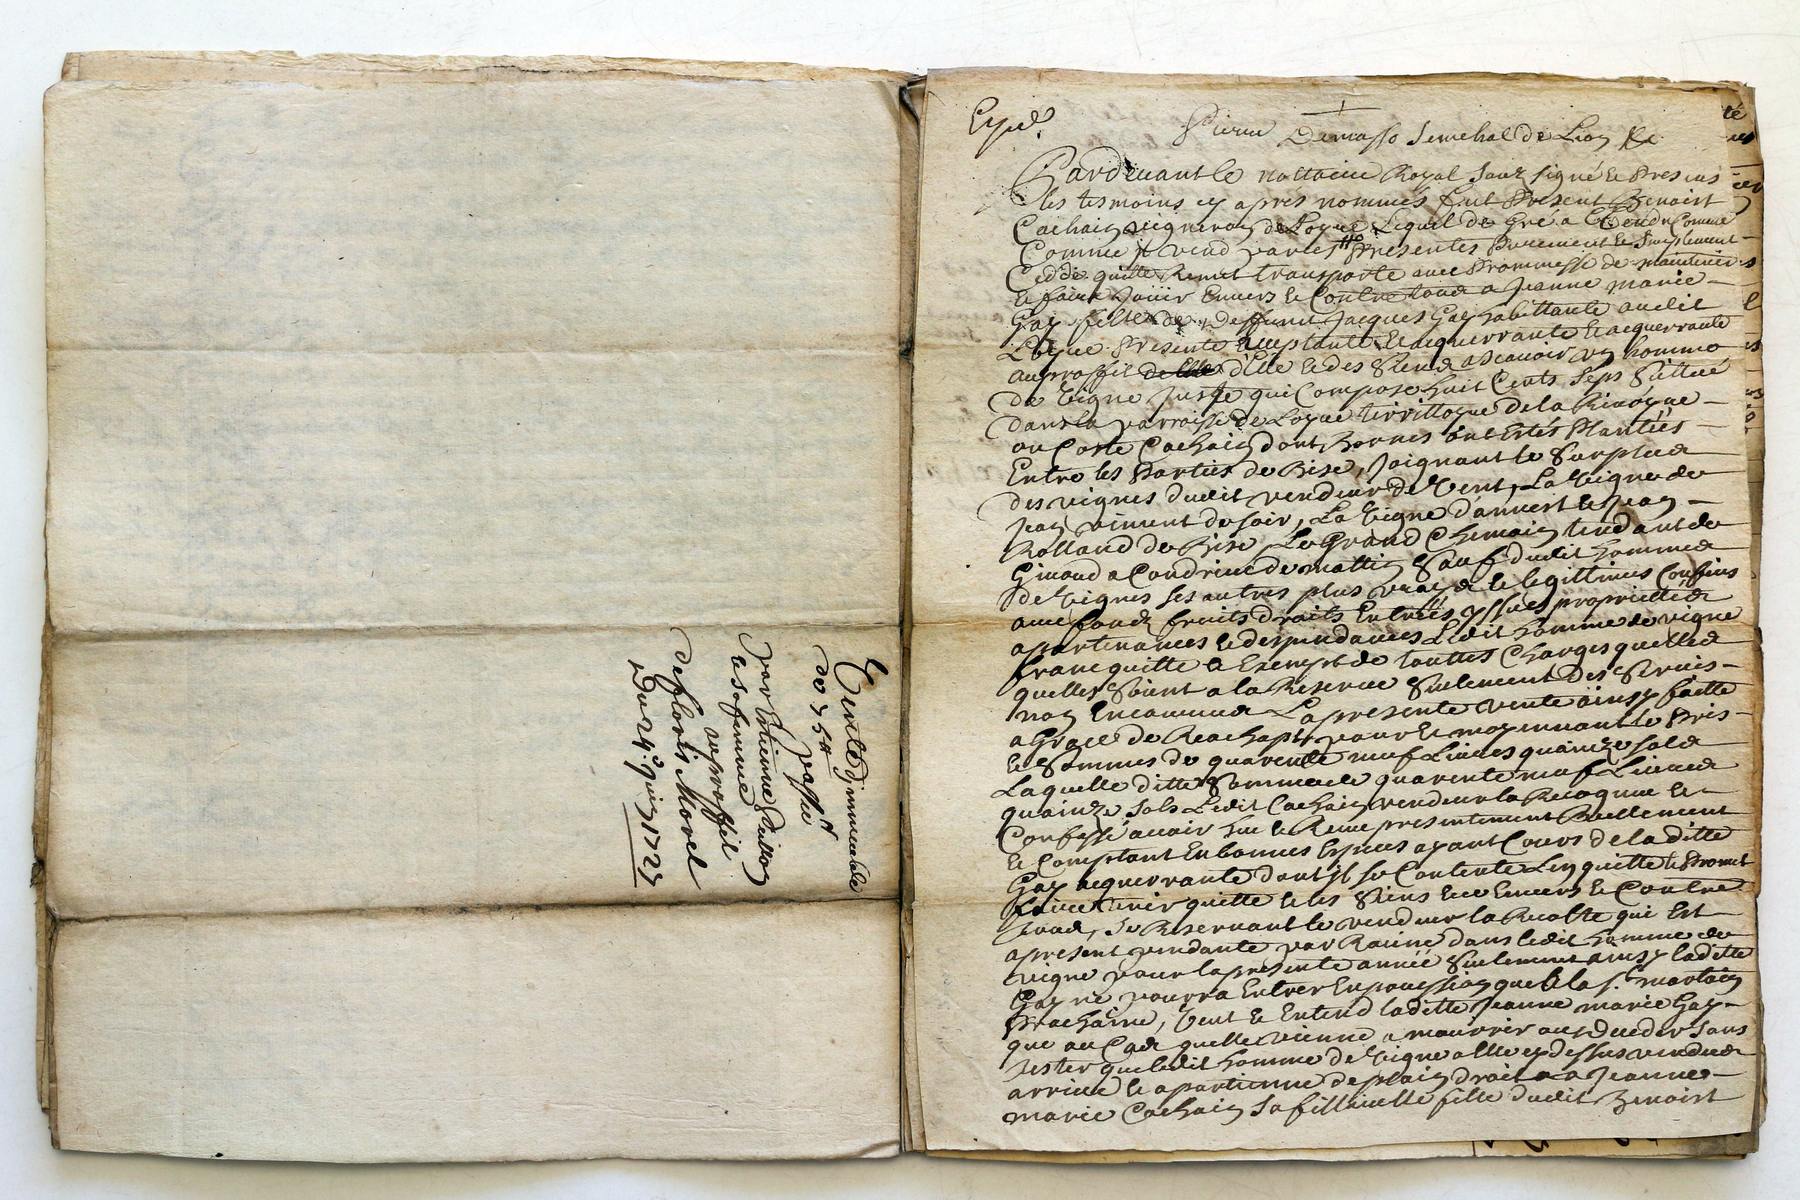 Vente d'immeuble
de 35# passée
par Estienne Guillon
et sa femme
au proffit
de floris Morel
Du 24e 1723
Expéd.
Pierre Demasso Senechal de Lion &c
Pardevant le nottaire Royal Souz signé et Presens
les tesmoins cy apres nommés fut Present Benoist
Cachain vigneron de Loyre Lequel de Gré a Vendu Comme
Comme Il vend par ces Presentes Purement et Simplement
Cedde quitte Remet transporte avec Prommesse de maintenir
et faire Joüir Envers et Contre tous a Jeanne marie
Gay fille de deffunt Jacques Gay habittante audit
Loyre Presente acceptante et acquerrante
au proffit d'Elle et des Siens a scavoir un homme
de vigne Juste qui Compose huit Cents Seps Sittué
dans la parroisse de Loyre territtoyre de la
ou Coste Cachain dont Bornes ont Estés Plantées
Entre les Parties de Bise, Joignant le Surplus
des vignes dudit vendeur de Vent, La Vigne de
Jean viment de soir, La Vigne d'annert et Jean
Rolland de Bise Le Grand Chemain tendant de
Givord a Condrieu de mattin Sauf dudit homme
de Vignes ses autres plus vrays et legittimes Confins
avec fonds fruits droits Entrées yssues proprietté
apartenances et despendances Ledit homme de vigne
franc quitte et Exempt de touttes Charges quelles
quelles Soient a la Reserve Seulement Des Servis
non Encourus La presente vente ainsy faitte
a Grace de Reachapt pour et moyennant le Pris
et Somme de quarente neuf Livres quainze sols
Laquelle ditte Somme de quarente neuf Livres
quainze Sols Ledit Cachain vendeur la Recogneu et
Confessé avoir heu et Receu presentement Reellement
et Comptant En bonnes Especes ayant Cours de la ditte
Gay acquerrante dont Il se Contente Len quitte et Promet
faire tenir quitte et les Siens Envers et Contre
tous, Se Reservant le vendeur la Recolte qui Est
apresent pendante par Racine dans ledit homme de
vigne pour la presente année Seulement ainsy ladette
Gay ne pourra Entrer En poussession que a la St martain
Prochaine, Veut et Entend laditte Jeanne marie Gay
que au Cas quelle vienne a mourrir ou deceder sans
tester que ledit homme de Vigne a Elle cy dessus vendu
arrive et apartienne de plain droit a Jeanne
marie Cachain Sa fillieulle fille dudit Benoist